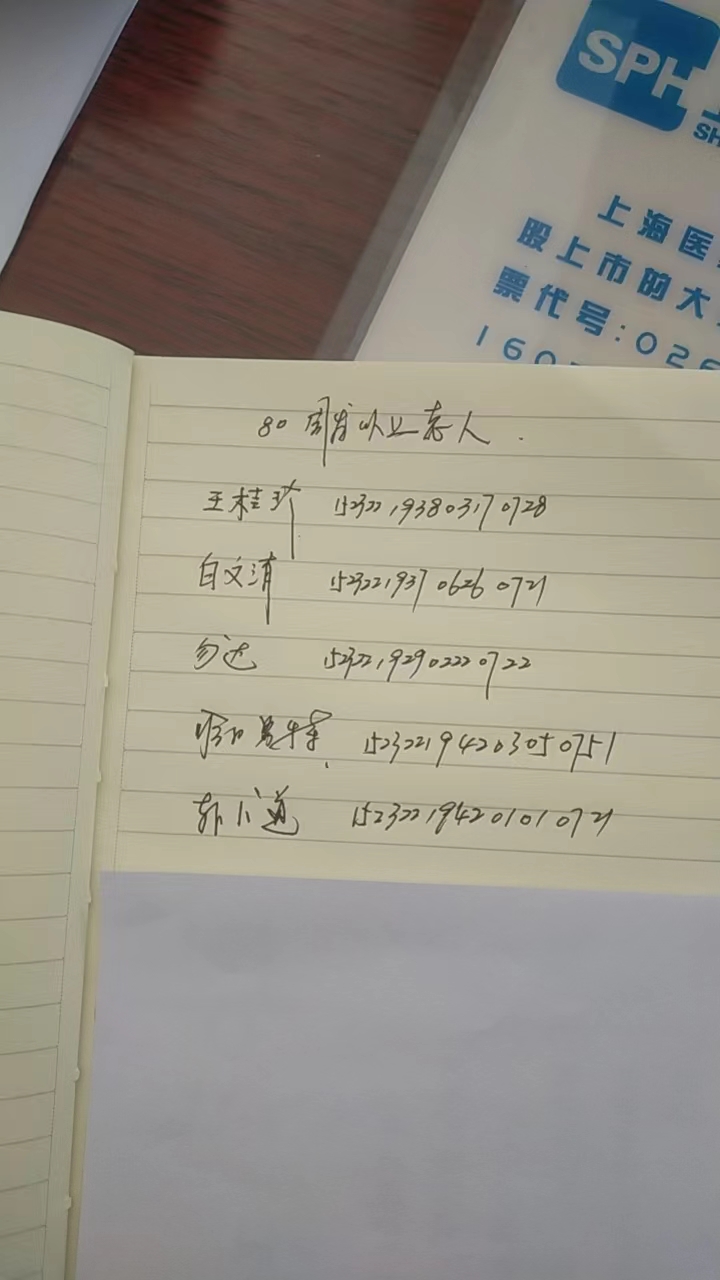 SPH
SH
上海医
股上市的大
票代号:026
160
80 周岁以上老人.
王桂珍 152322193803170728
白文清 152322193706260721
勿达 152322192902220722
152322194203050751
152322194201010721